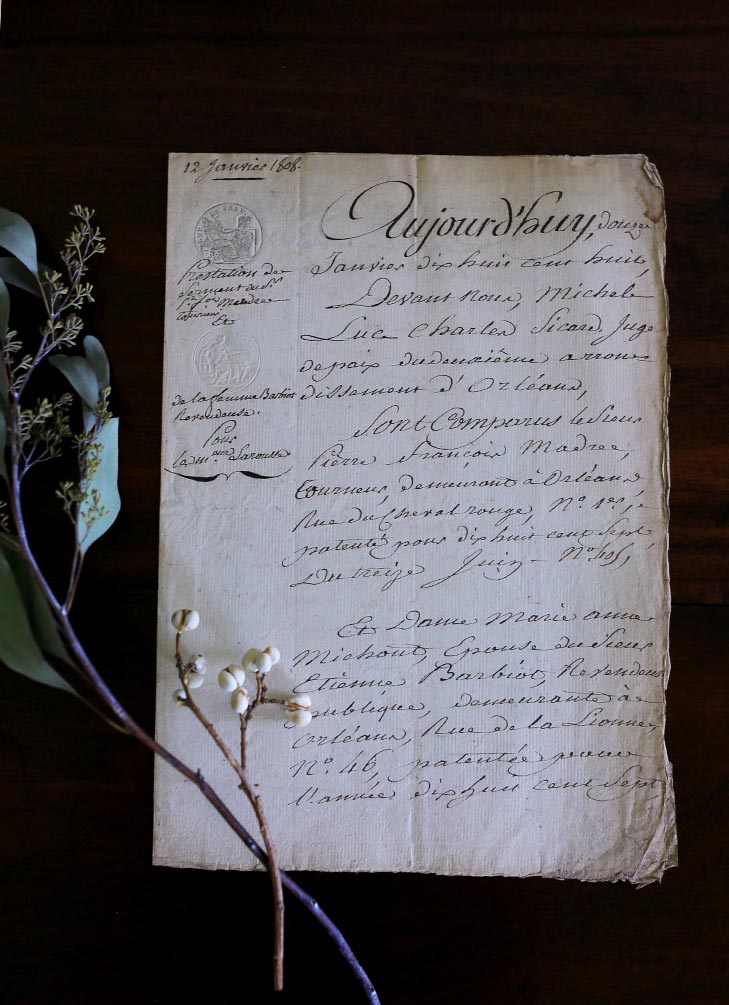 12 Janvier 1808.
Prestation de
Serment du Sr.
Madree
tourneur
Et
de la femme Barbiot
Revendeuse.
Pour
le mineur Larousse
Aujourd'huy, douze
Janvier dix huit cent huit,
Devant Nous, Michel
Luc Charles Sicard, Juge
de paix du deuxième arron=
dissement d'Orléans,
Sont Comparus le Sieur
Pierre François Madree,
tourneur, demeurant à Orléans
Rue du Cheval rouge, No.
patenté pour dix huit cent Sept,
du treize Juin No.
Et Dame Marie anne
Michout, Epouse du Sieur
Etienne Barbiot, Revendeuse
publique, demeurante à
Orléans, Rue de la Lionne,
No. 46, patentée pour
l'année dix huit cent Sept